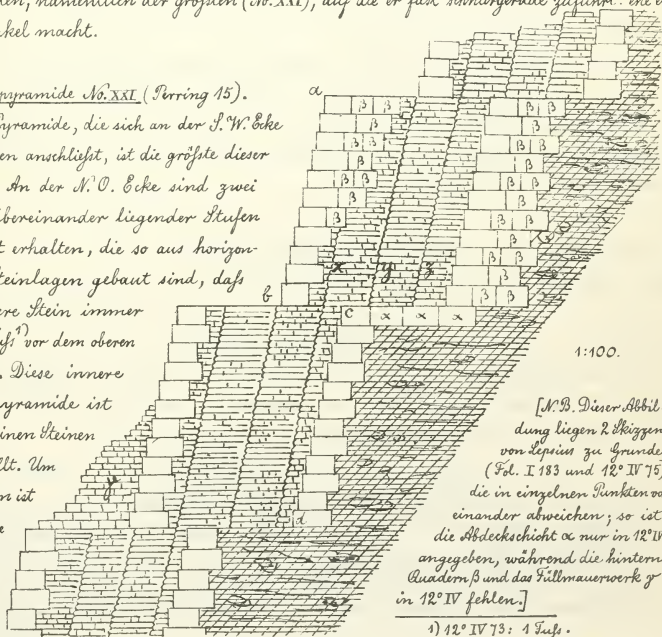 namentlich der größten (No. XXI), auf die er fast schnurgerade zuführt
macht.
pyramide No. XXI (Perring 15).
yramide, die sich an der S. W. Ecke
en anschließt, ist die größte dieser
An der N. O. Ecke sind zwei
übereinander liegender Stufen
t erhalten, die so aus horizon-
teinlagen gebaut sind, daß
ere Stein immer
uß 1) vor dem oberen
. Diese innere
yramide ist
einen Steinen
llt. Um
n ist
e
a
β β
β
β β
β
β β
β
β
β β
β
β β
β
β β
β
β β
β
β β
β β
x y z
b
c α α α
γ
d
1:100.
[N.B. Dieser Abbil-
dung liegen 2 Skizzen
von Lepsius zu Grunde
(Fol. I 183 und 12° IV 75)
die in einzelnen Punkten vo
einander abweichen; so ist
die Abdeckschicht α nur in 12° IV
angegeben, während die hintern
Quadern β und das Füllmauerwerk γ
in 12° IV fehlen.]
1) 12° IV 73: 1 Fuß.